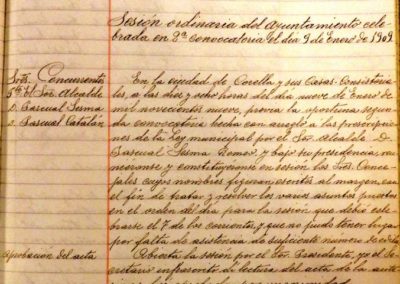 Sesión ordinaria del Ayuntamiento cele-
brada en 2ª convocatoria el día 9 de Enero de 1909
Sres. Concurrents
Pte. el Sor. Alcalde
D. Pascual Sesma
D. Pascual Catalán
En la ciudad de Corella y sus Casas Consistoria-
les, a las diez y ocho horas del día nueve de Enero de
mil novecientos nueve, previa la oportuna segun-
da convocatoria hecha con arreglo a las prescripcio-
nes de la Ley municipal por el Sor. Alcalde D.
Pascual Sesma Romeo y bajo su presidencia, se
reunieron y constituyeron en sesión los Sres. Conce-
jales cuyos nombres figuran escritos al margen, con
el fin de tratar y resolver los varios asuntos puestos
en el orden del día para la sesión que debió cele-
brarse el 7 de los corrientes, y que no pudo tener lugar
por falta de asistencia de suficiente número de
aprobación del acta
Abierta la sesión por el Sor. Presidente, yo el se-
cretario infrascrito di lectura del acta de la ante-